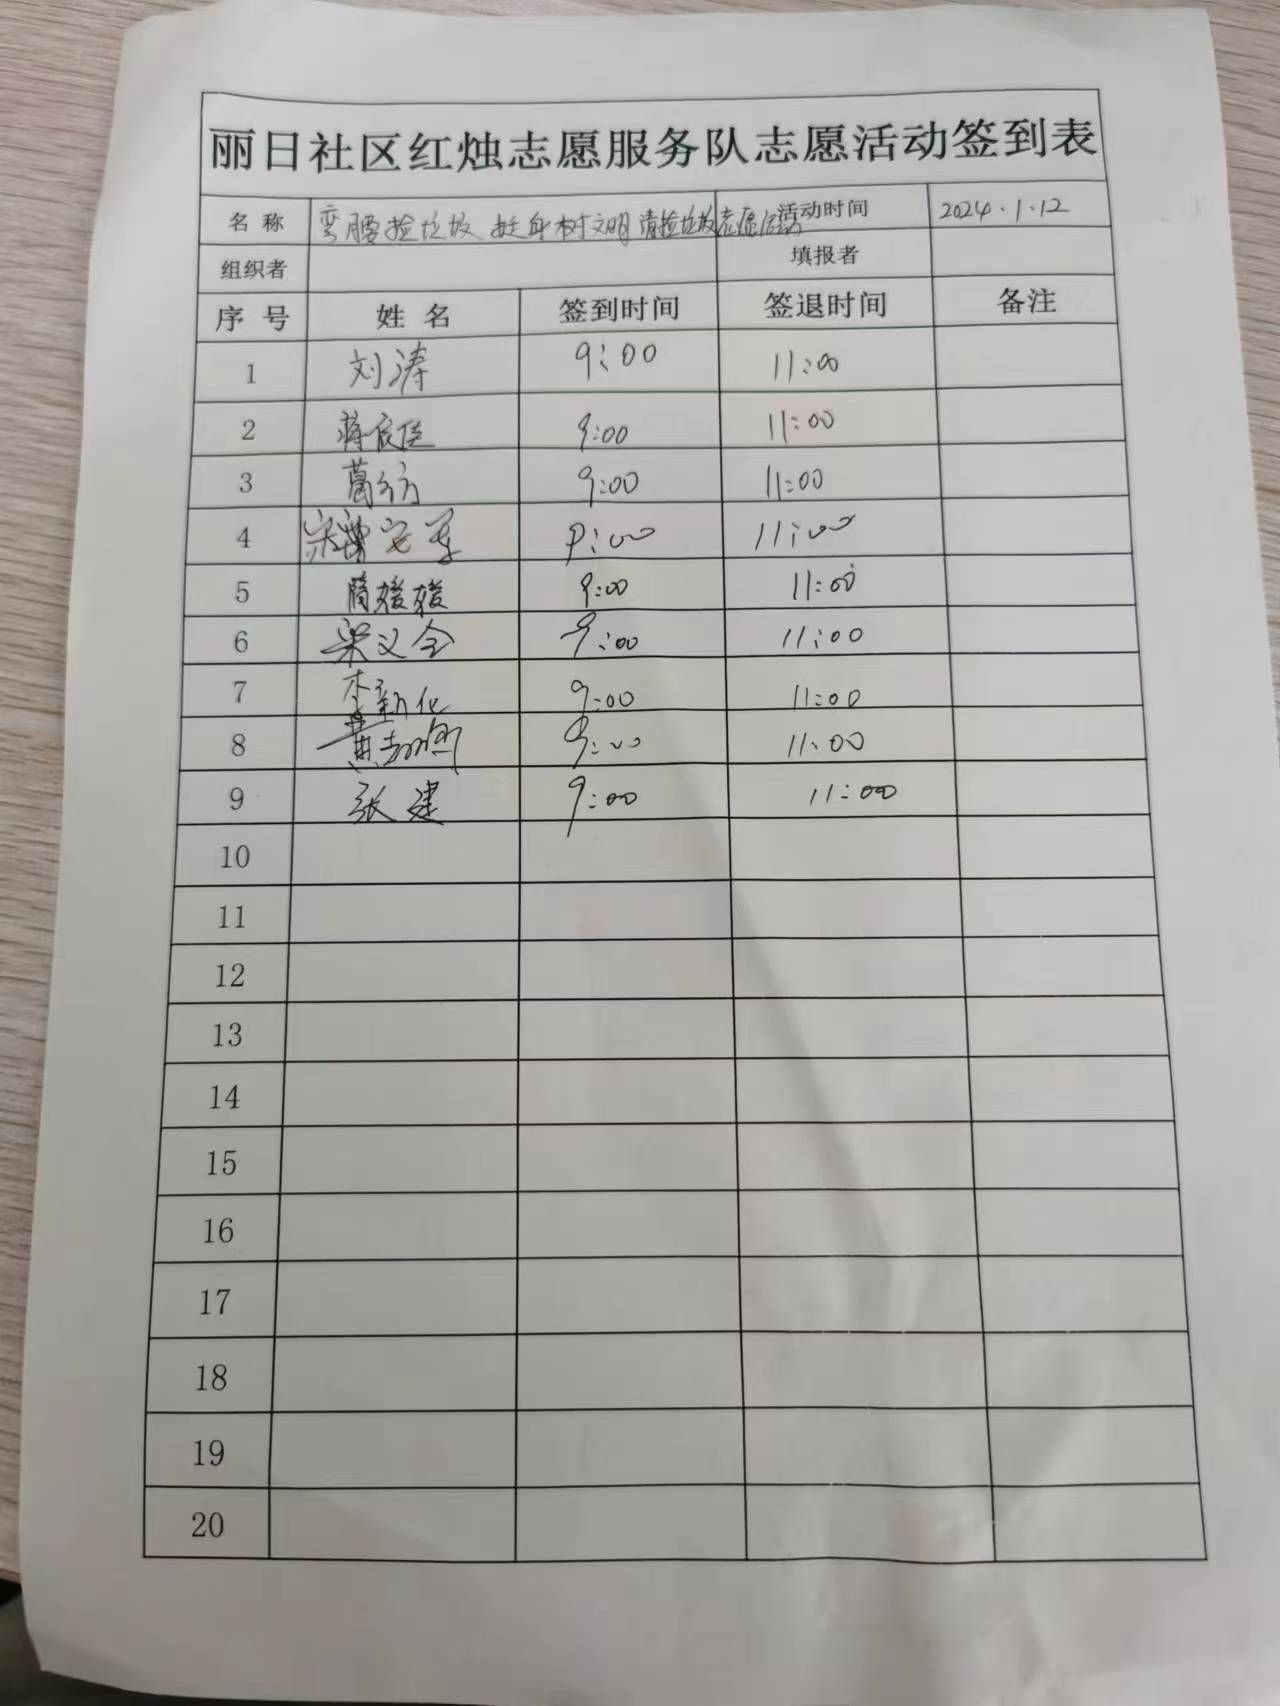 丽日社区红烛志愿服务队志愿活动签到表
名称 弯腰捡垃圾 挺身树文明 清捡垃圾志愿活动 活动时间 2024.1.12
组织者 填报者
序号 姓名 签到时间 签退时间 备注
1 刘涛 9:00 11:00
2 蒋辰佳 9:00 11:00
3 葛方方 9:00 11:00
4 9:00 11:00
5 蔺媛媛 9:00 11:00
6 梁义全 9:00 11:00
7 李新化 9:00 11:00
8 黄 9:00 11:00
9 张建 9:00 11:00
10
11
12
13
14
15
16
17
18
19
20